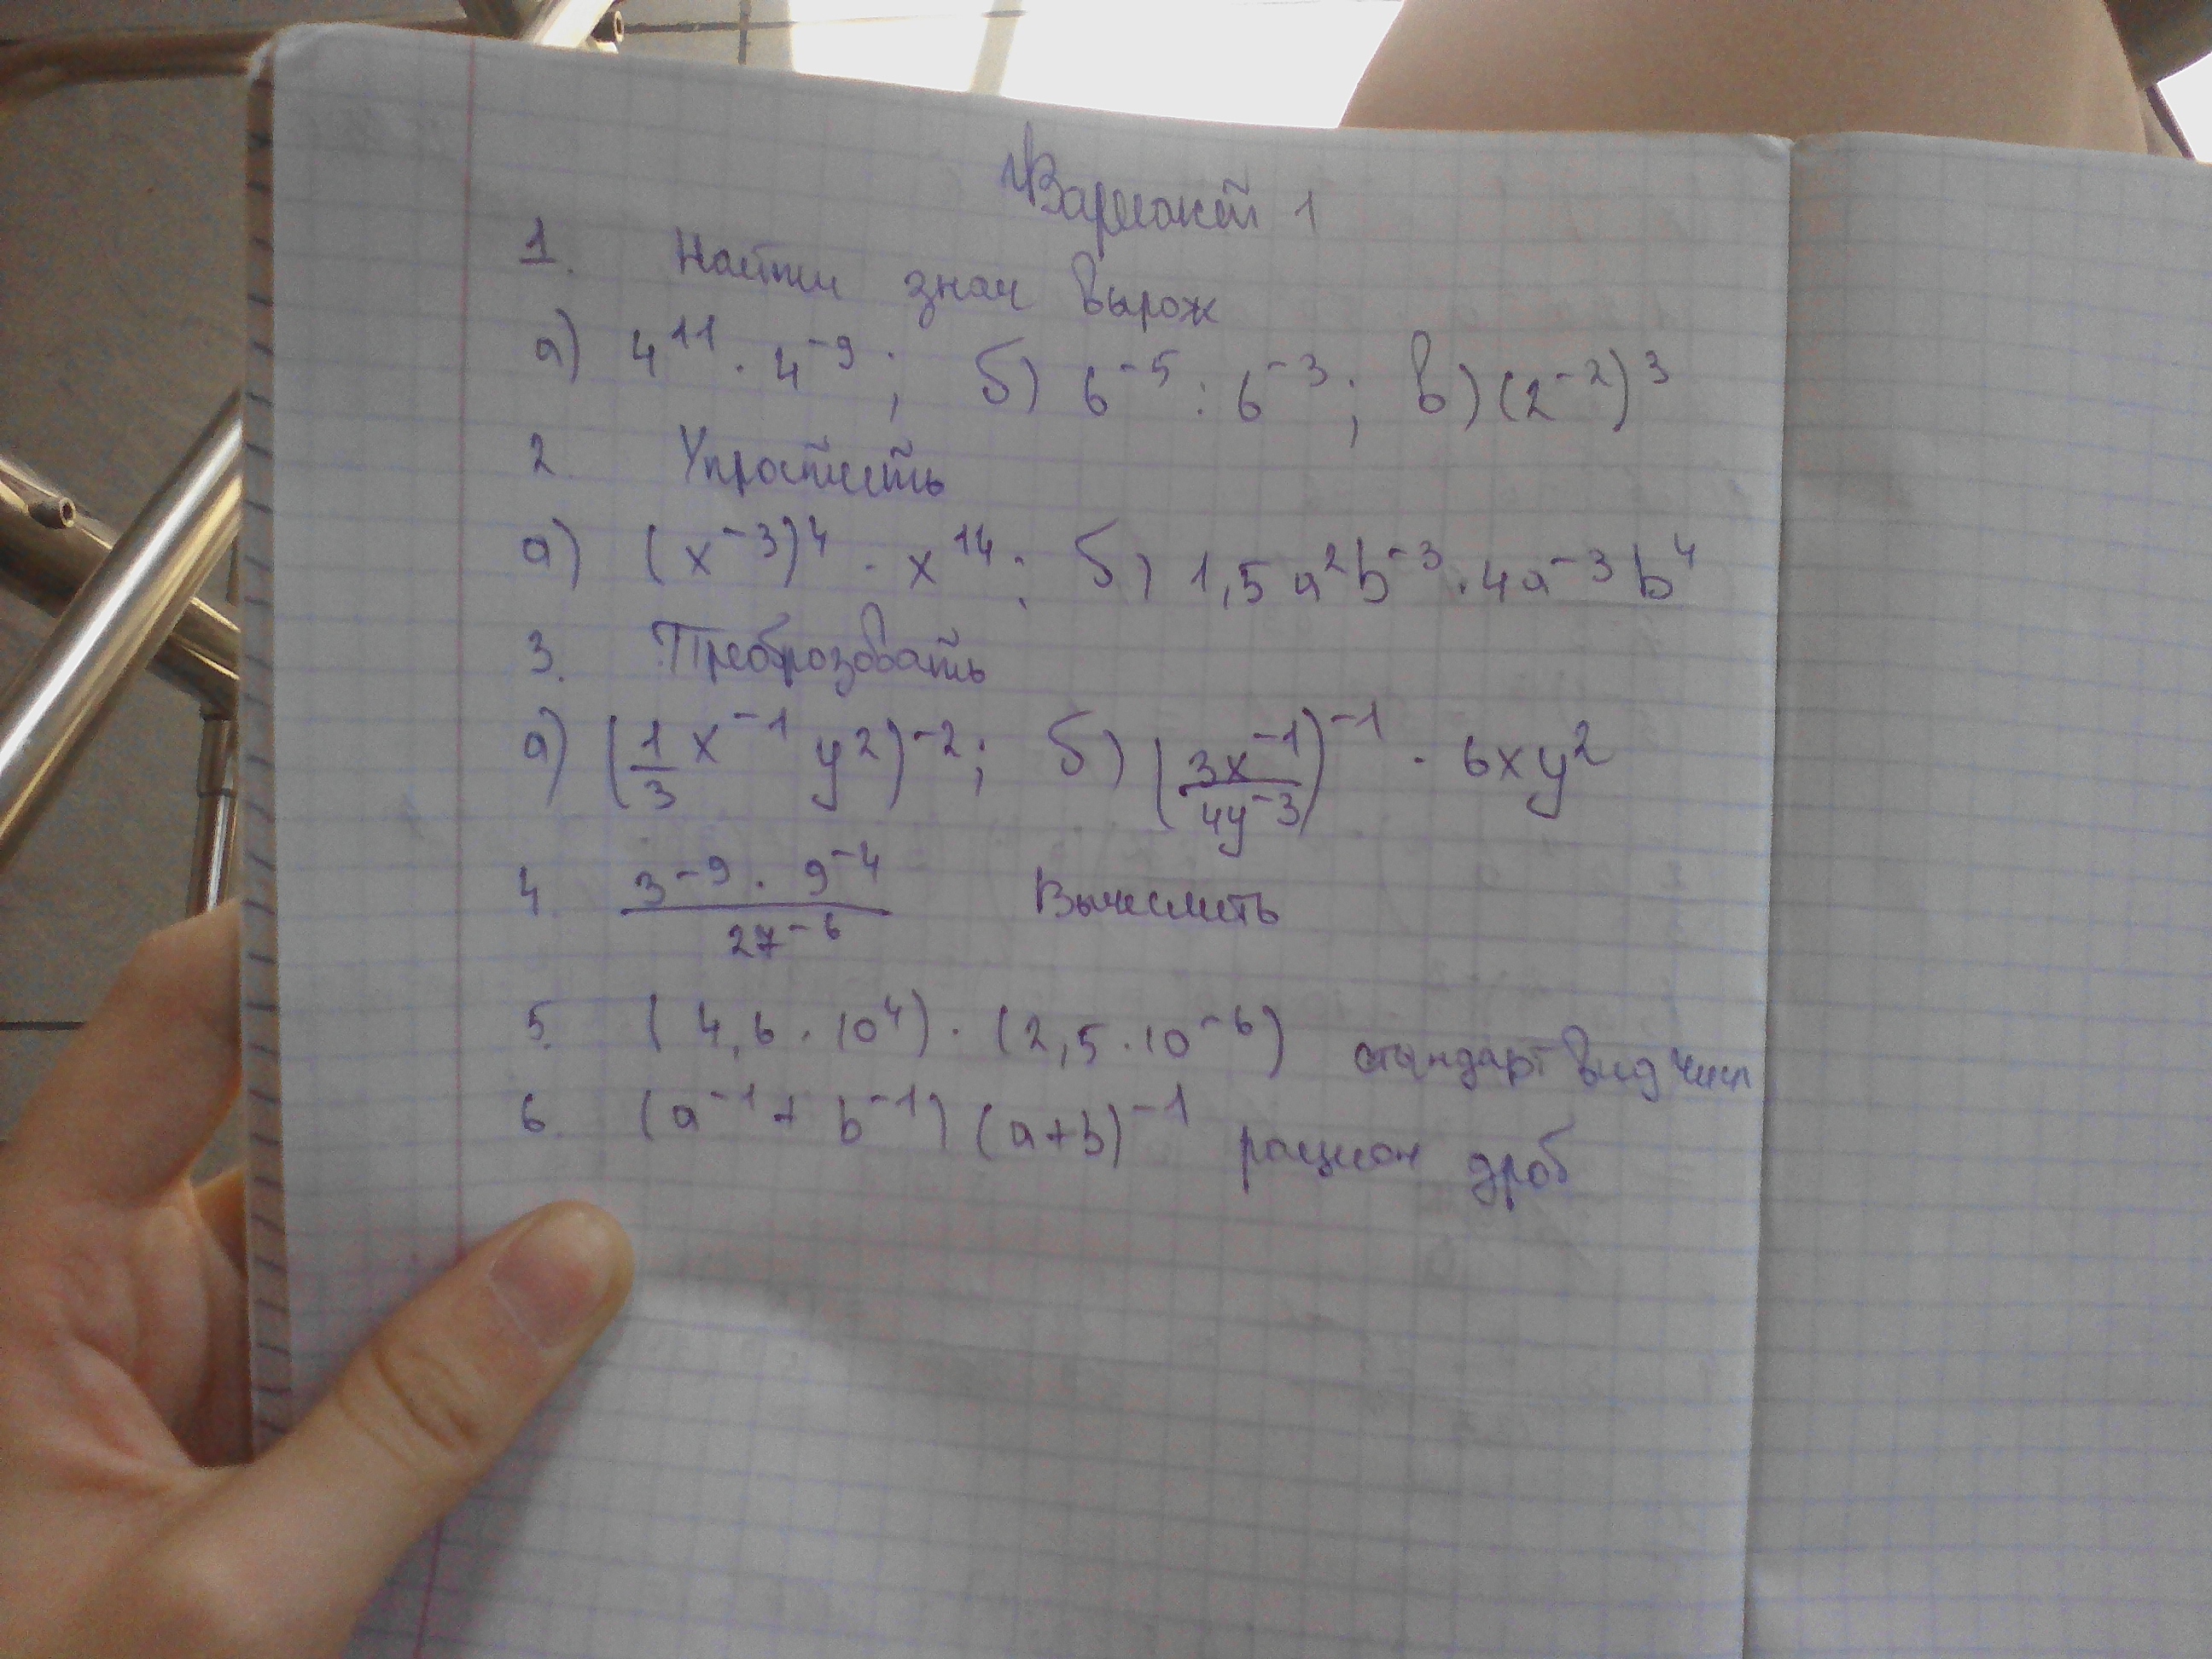 Вариант 1
1. Найти знач выраж
а) 4¹¹ · 4⁻⁹; б) 6⁻⁵ : 6⁻³; в) (2⁻²)³
2 Упростить
а) (x⁻³)⁴ · x¹⁴; б) 1,5a²b⁻³ · 4a⁻³b⁴
3. Преброзовать
а) (1/3 x⁻¹ y²)⁻²; б) (3x⁻¹/4y⁻³)⁻¹ · 6xy²
4. 3⁻⁹ · 9⁻⁴ / 27⁻⁶ Вычислить
5. (4,6 · 10⁴) · (2,5 · 10⁻⁶) стандарт вид числ
6. (a⁻¹ + b⁻¹)(a+b)⁻¹ рацион дроб